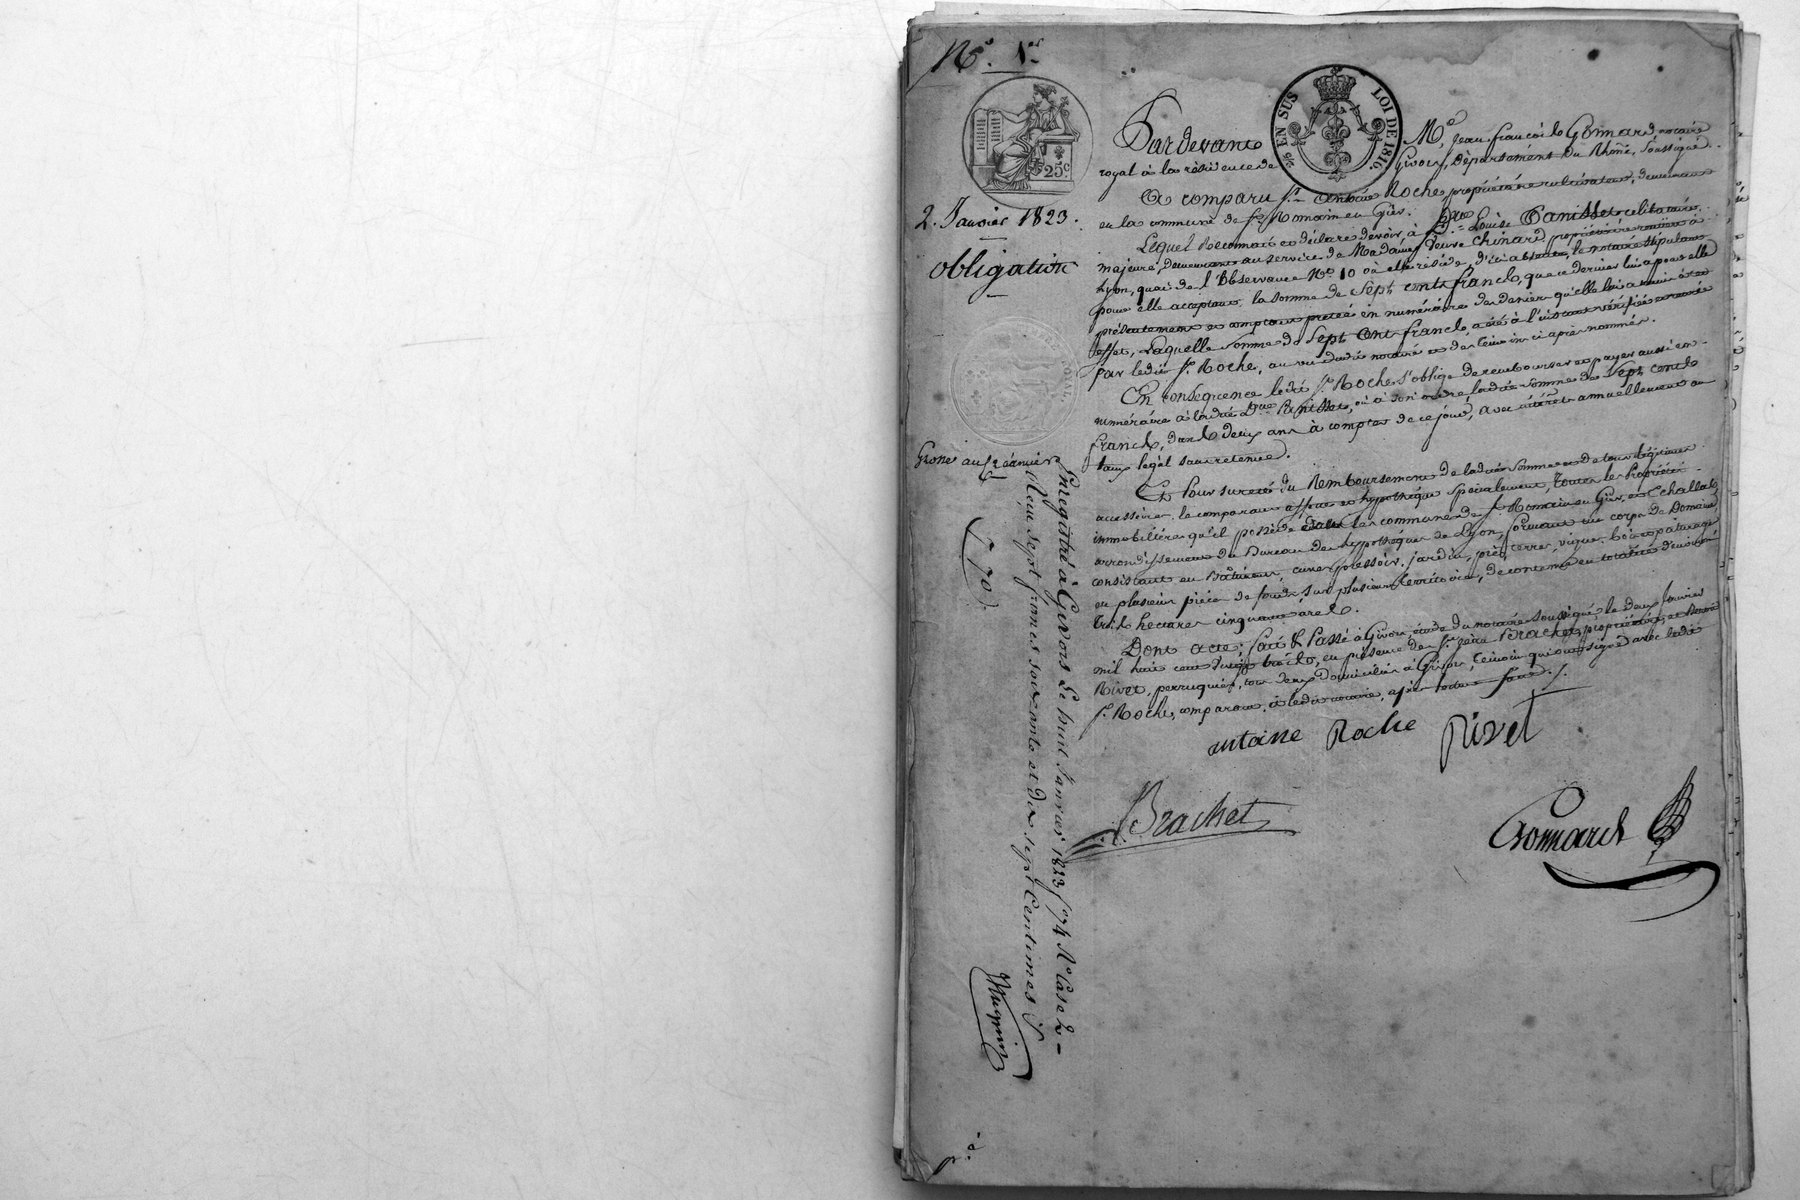 N.° 1.er
25c.
EN SUS
LOI DE 1816.
2. Janvier 1823.
obligation
Pardevant M.e Jean françois Gonnard, notaire
royal à la résidence de Givors, département du Rhône, soussigné.
A comparu s.r Antoine Roche propriétaire cultivateur, demeurant
en la commune de s.t Romain en Giers.
Lequel Reconnait et déclare devoir, à D.lle Louise Panisset celibataire
majeure, demeurant au service de Madame Veuve Chinard, propriétaire rentière à
Lyon, quai de l'Observance N.° 10 où elle réside, d'ici absente, le notaire stipulant
pour elle acceptant, la somme de Sept cents francs, que ce dernier lui a pour elle
présentement et comptant prêtée en numéraire des deniers qu'elle lui a remis à cet
effet, Laquelle somme de Sept Cent francs, a été à l'instant vérifiée et retirée
par ledit s.r Roche, au vu dudit notaire et des témoins ci après nommés.
En conséquence ledit s.r Roche s'oblige de rembourser et payer aussi en
numéraire à ladite D.lle Panisset, où à son ordre ladite somme de Sept cents
francs, dans deux ans à compter de ce jour, avec intérêts annuellement au
taux légal sans retenue.
Et Pour sureté du Remboursement de ladite somme et de tous légitimes
accessoires, le comparant affecte et hypothèque spécialement, toutes les Propriétés
immobilières qu'il possède dans les communes de s.t Romain en Giers, et Echallas,
arrondissement du Bureau des hypothèques de Lyon, formant un corps de Domaine
consistant en Bâtiment, cuver, pressoir, jardin, prés, terres, vigne, bois et pâturage
en plusieurs pièces de fonds sur plusieurs territoires, de contenu en totalité d'environ
trois hectares cinquante ares.
Dont acte; fait & Passé à Givors, étude du notaire soussigné, le deux Janvier
mil huit cent vingt trois, en présence des s.rs Brachet, propriétaire, et
Rivet, perruquier, tous deux domiciliés à Givors, témoins qui ont signé avec ledit
s.r Roche, comparant, et ledit notaire, après lecture faite.
antoine Roche Rivet
Brachet
Gonnard
Enregistré à Givors Le huit Janvier 1823 f.° 74 R.° Case 2
Reçu sept francs soixante et dix sept Centimes